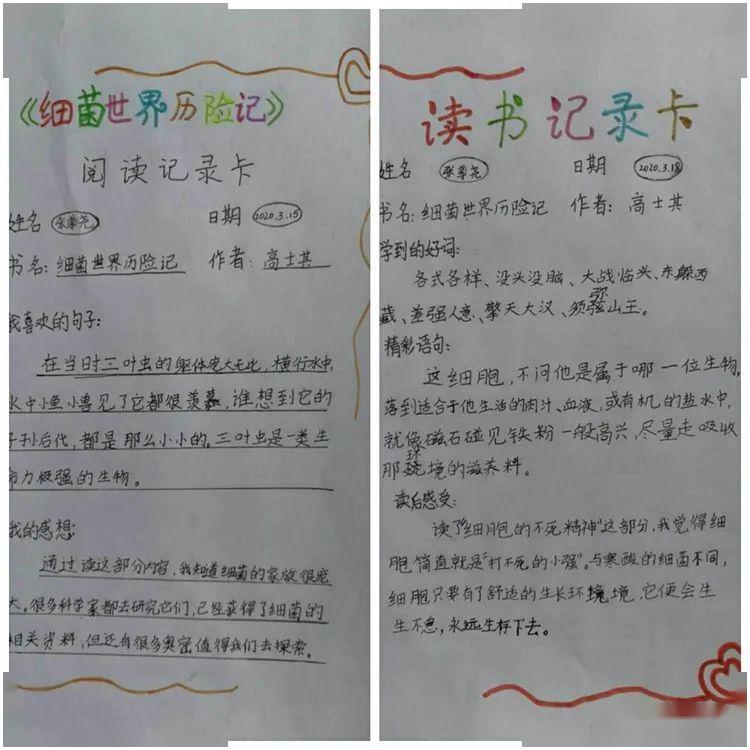 《细菌世界历险记》
阅读记录卡
姓名 张章尧 日期 2020.3.15
书名：细菌世界历险记 作者：高士其
我喜欢的句子：
在当时三叶虫的躯体庞大无比，横行水中，
水中小鱼小兽见了它都很羡慕，谁想到它的
子孙后代，都是那么小小的。三叶虫是一类生
命力极强的生物。
我的感想：
通过读这部分内容，我知道细菌的家族很庞
大。很多科学家都去研究它们，已经获得了细菌的
相关资料，但还有很多奥密值得我们去探索。
读书记录卡
姓名 张章尧 日期 2020.3.18
书名：细菌世界历险记 作者：高士其
学到的好词：
各式各样、没头没脑、大战临头、东躲西
藏、差强人意、擎天大汉、须弥山王。
精彩语句：
这细胞，不问他是属于哪一位生物，
落到适合于他生活的肉汁、血液，或有机的盐水中，
就像磁石碰见铁粉一般高兴，尽量走吸收
那环境的滋养料。
读后感受：
读了“细胞的不死精神”这部分，我觉得细
胞简直就是“打不死的小强”。与寒酸的细菌不同，
细胞只要有了舒适的生长环境，它便会生
生不息，永远生存下去。